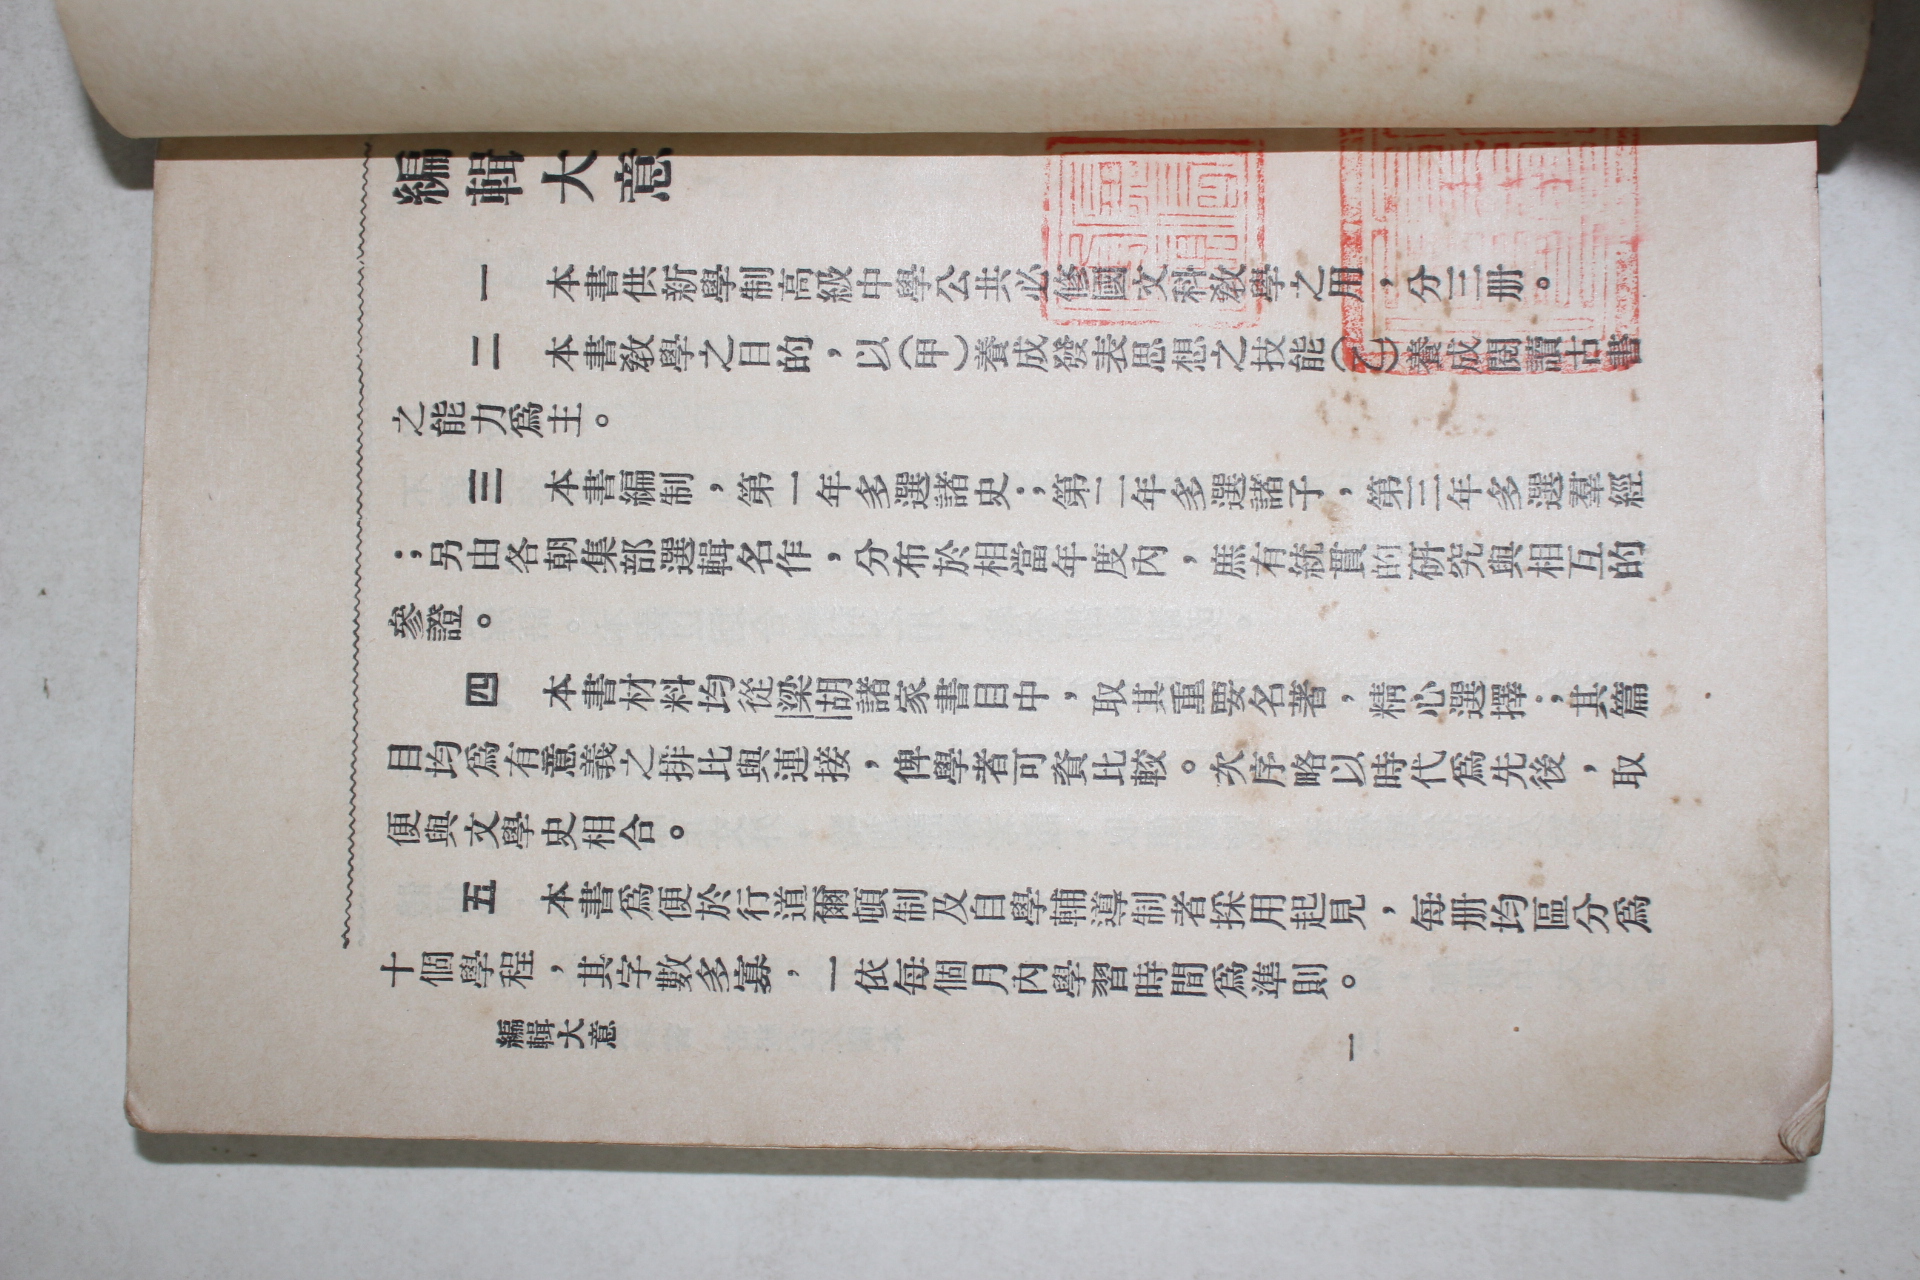 編輯大意
一　本書供新學制高級中學公共必修國文科教學之用，分三册。
二　本書教學之目的，以（甲）養成發表思想之技能（乙）養成閱讀古書
之能力爲主。
三　本書編制，第一年多選諸史；第二年多選諸子，第三年多選羣經
；另由各朝集部選輯名作，分布於相當年度內，庶有統貫的研究與相互的
參證。
四　本書材料均從梁胡諸家書目中，取其重要名著，精心選擇；其篇
目均爲有意義之排比與連接，俾學者可資比較。次序略以時代爲先後，取
便與文學史相合。
五　本書爲便於行道爾頓制及自學輔導制者採用起見，每册均區分爲
十個學程，其字數多寡，一依每個月內學習時間爲準則。
編輯大意
一